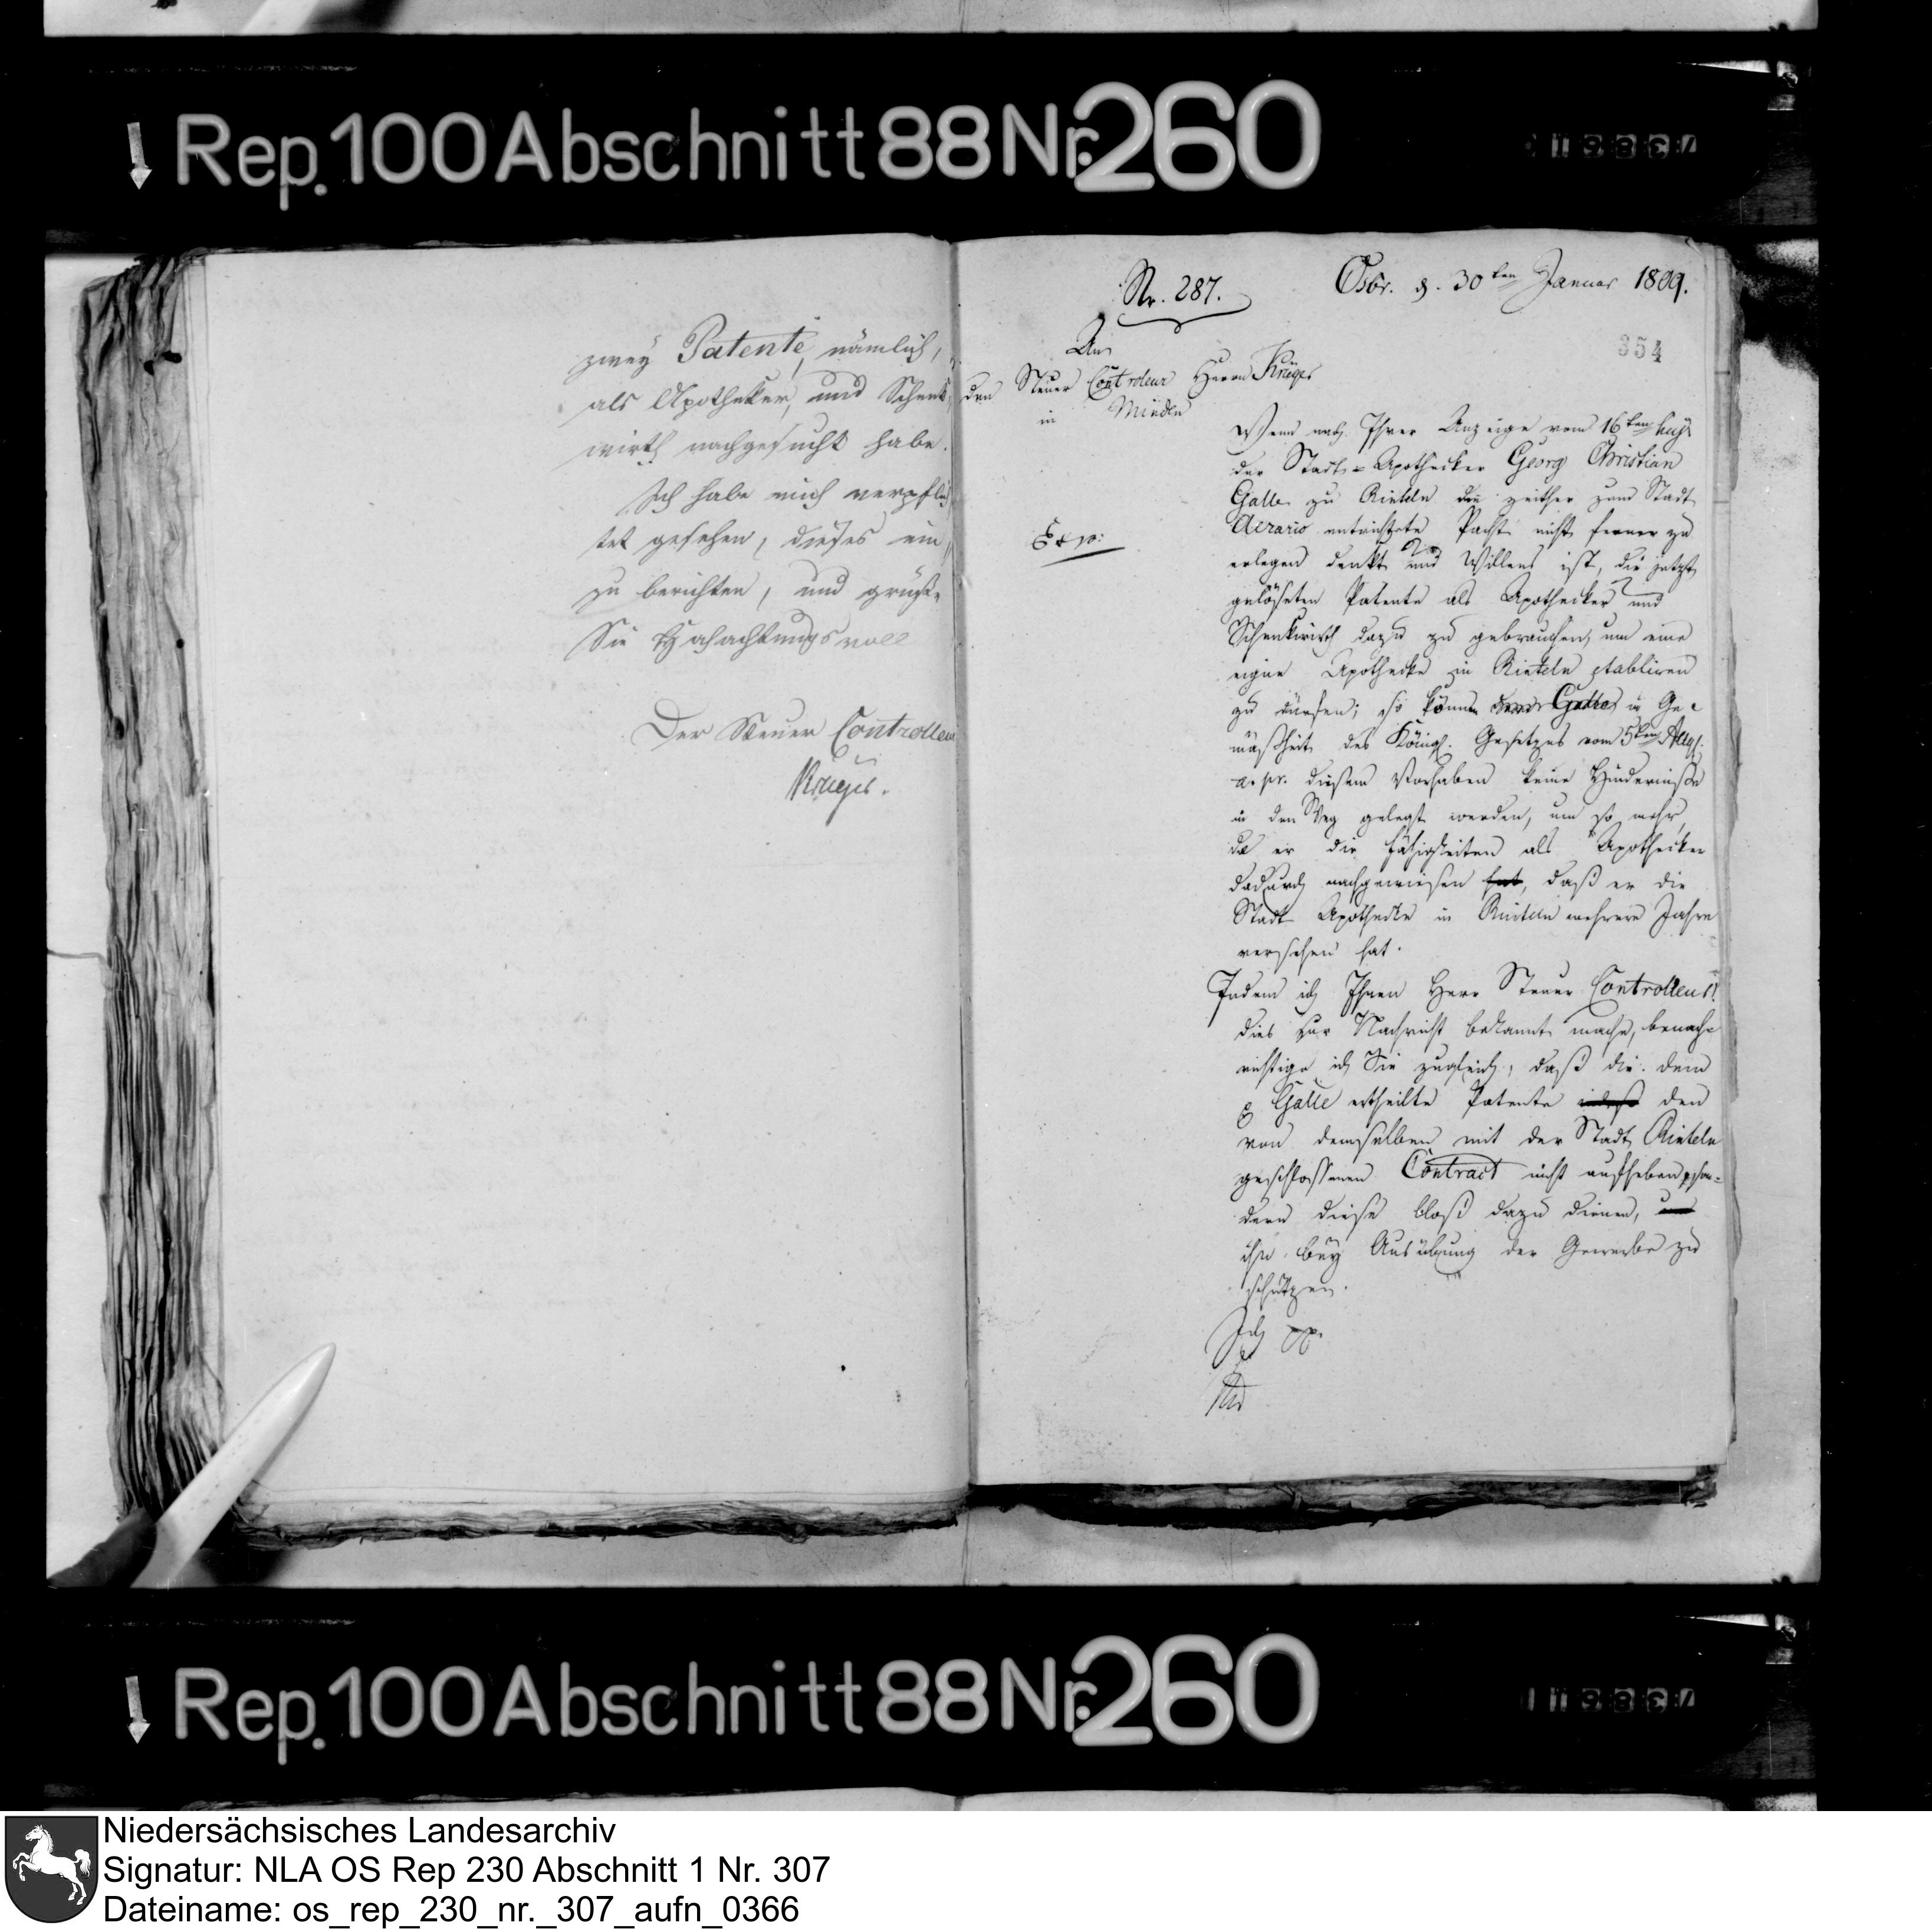 Rep. 100 Abschnitt 88 Nr. 260
zwey Patente, nämlich,
als Apotheker, und Schenk
wirth nachgesucht habe.
Ich habe mich verpflich
tet gesehen, dieses
zu berichten, und grüße
Sie Hochachtungsvoll
Der Steuer Controlleur
Krüger.
Nr. 287.
Osbr. d. 30ten Januar 1809.
354
An
den Steuer Controleur Herrn Krüger
in Minden
Exp:
Wenn nach Ihrer Anzeige vom 16ten
der Stadt-Apothecker Georg Christian
Galle zu Rinteln die zeither zum Stadt
Aerario entrichtete Pacht nicht ferner zu
erlegen denkt und Willens ist, die jetzt
gelöseten Patente als Apothecker und
Schenkwirth dazu zu gebrauchen, um eine
eigne Apothecke in Rinteln etabliren
zu dürfen; so können Galle in Ge-
mäßheit des Königl. Gesetzes vom 5ten Aug.
a. pr. diesem Vorhaben keine Hinderniße
in den Weg gelegt werden, um so mehr,
da er die Fähigkeiten als Apothecker
dadurch nachgewiesen hat, daß er die
Stadt Apothecke in Rinteln mehrere Jahre
versehen hat.
Indem ich Ihnen Herr Steuer Controlleur!
dies zur Nachricht bekannt mache, benach-
richtige ich Sie zugleich, daß die dem
Galle ertheilte Patente den
von demselben mit der Stadt Rinteln
geschlossenen Contract nicht aufheben, son-
dern diese bloß dazu dienen,
ihn bey Ausübung der Gewerbe zu
schützen.
Ich pp.
Rep. 100 Abschnitt 88 Nr. 260
Niedersächsisches Landesarchiv
Signatur: NLA OS Rep 230 Abschnitt 1 Nr. 307
Dateiname: os_rep_230_nr._307_aufn_0366